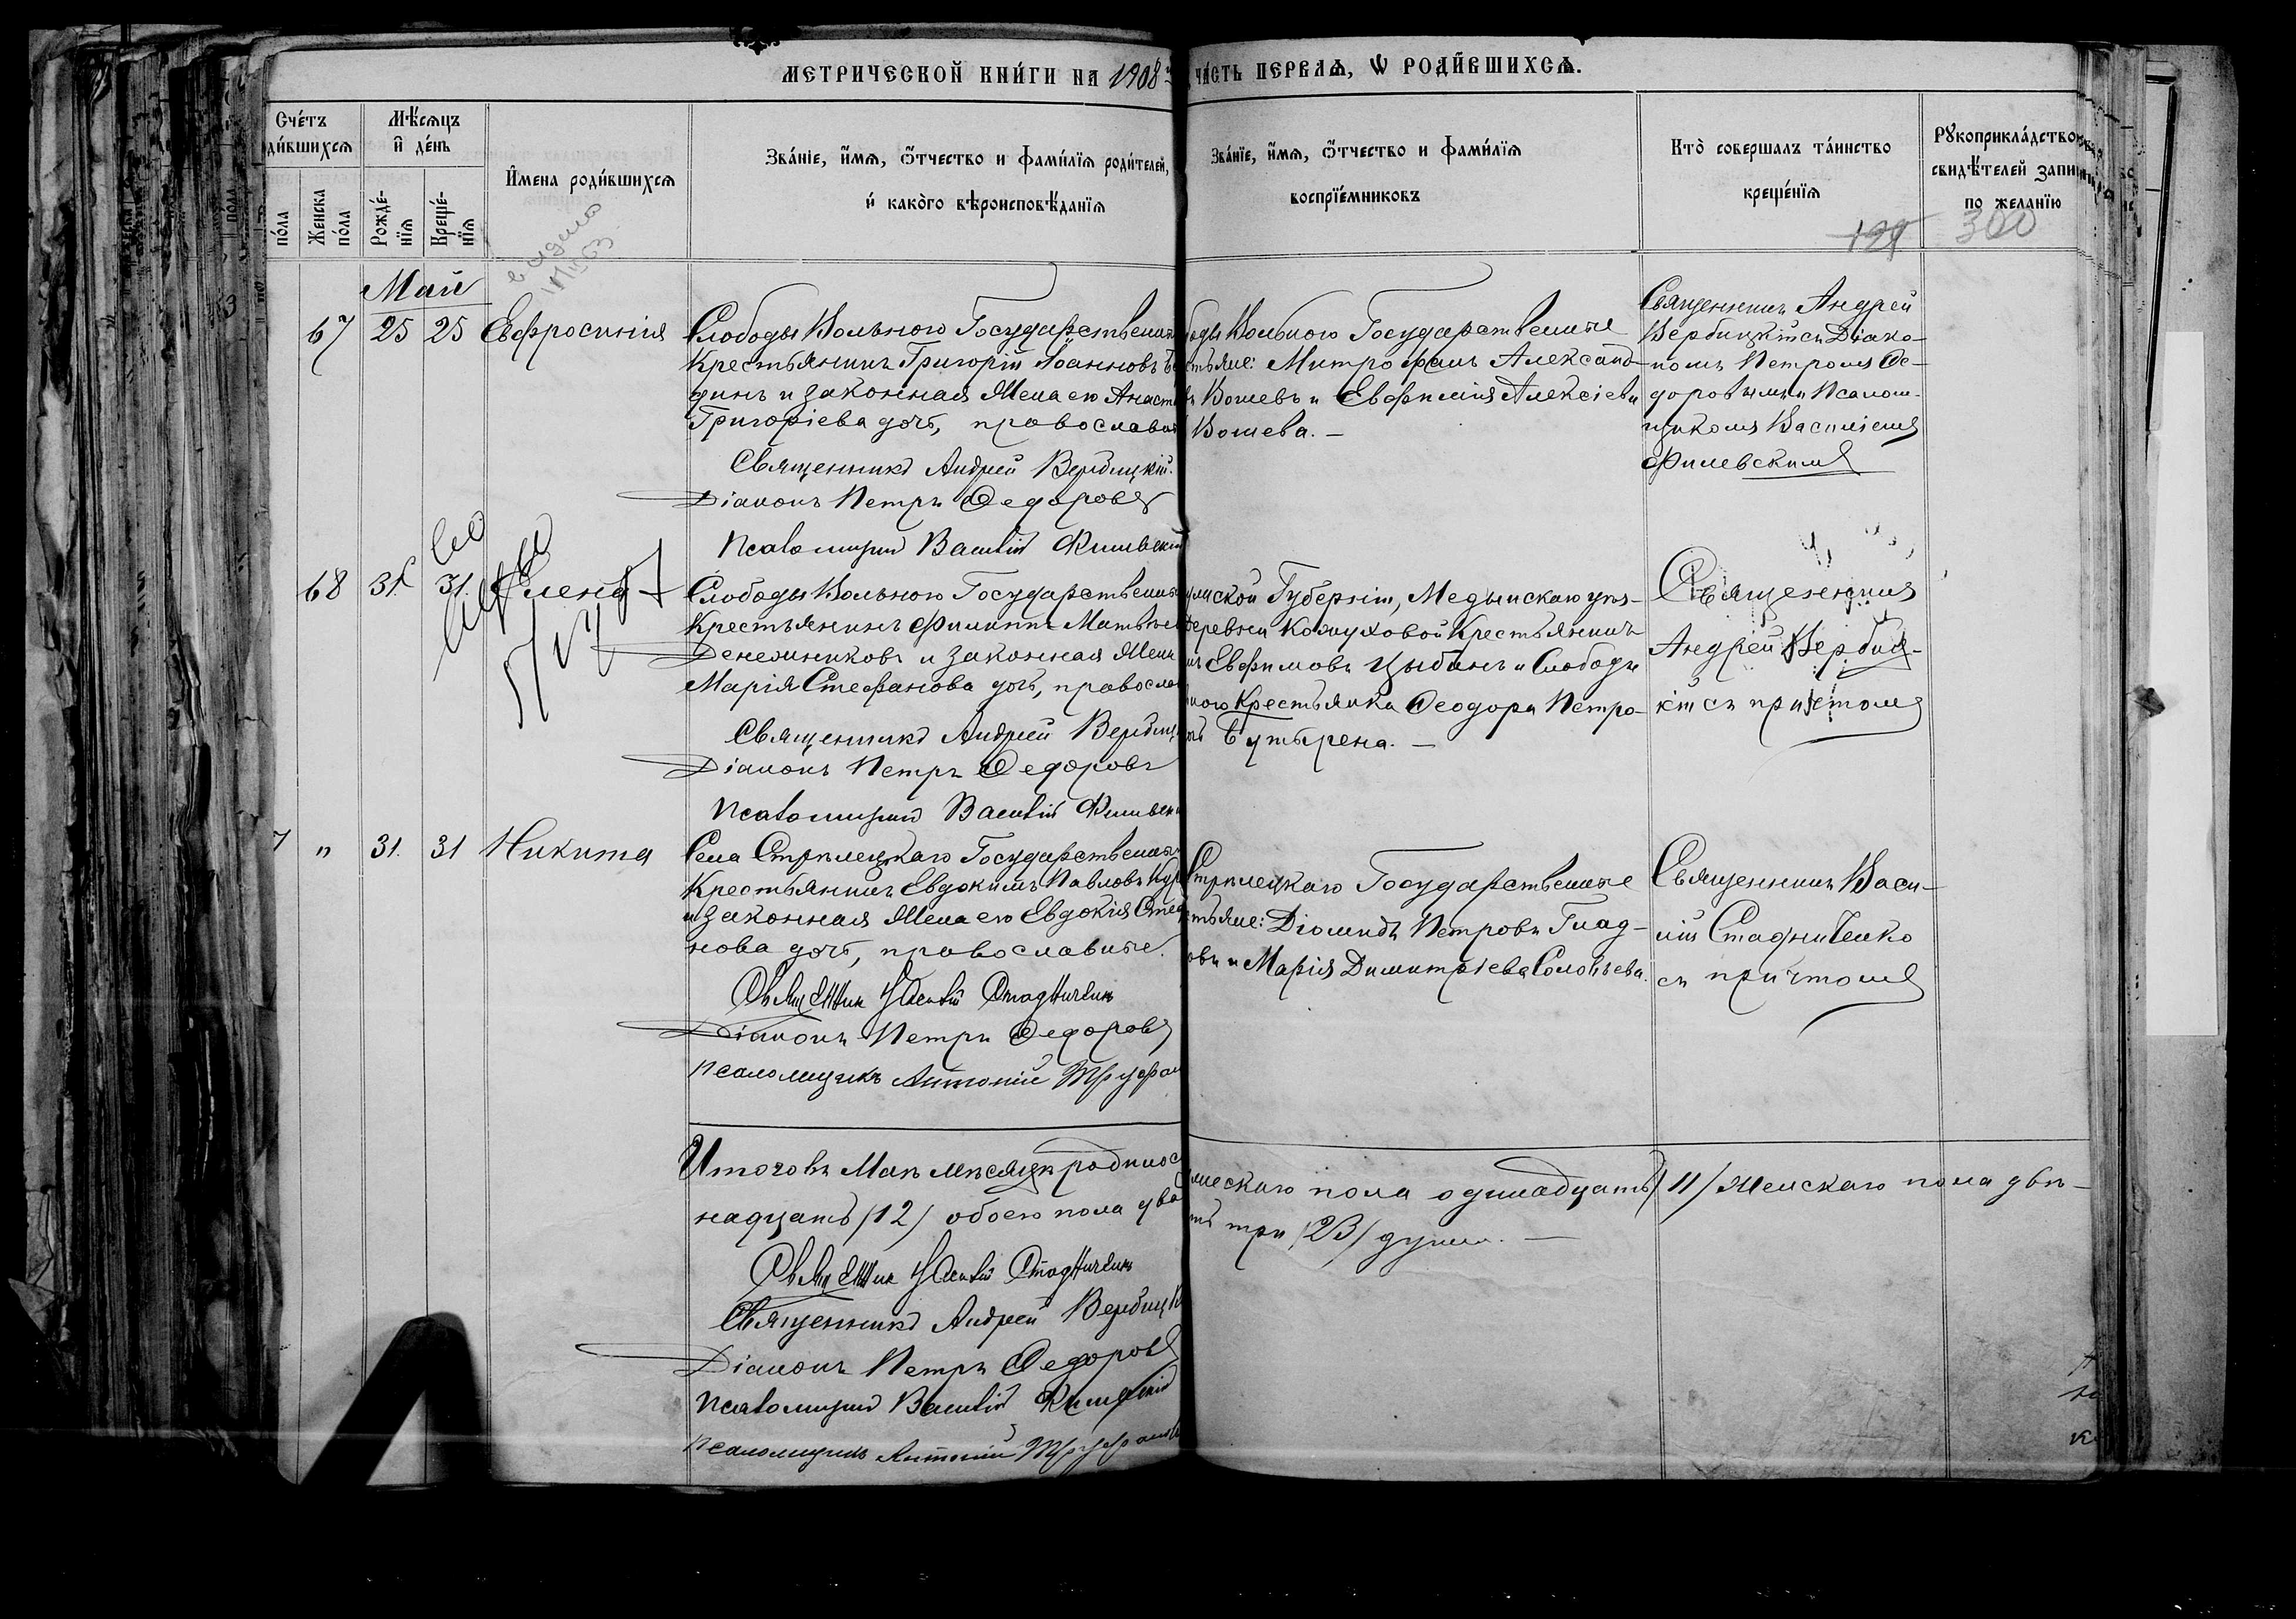 МЕТРИЧЕСКОЙ КНИ́ГИ НА 1908
ЧА́СТЬ ПЕРВАѦ, Ѡ РОДИ́ВШИХСѦ.
Сче́тъ
ди́вшихсѧ
Мѣ́сѧцъ
и҆ де́нь
И҆́мена роди́вшихсѧ
Зва́нїе, и҆́мѧ, ѻ҆́тчество и фами́лїѧ роди́телей,
и҆ како́го вѣроисповѣ́данїѧ
Зва́нїе, и҆́мѧ, ѻ҆́тчество и фами́лїѧ
воспрїе́мниковъ
Кто̀ соверша́лъ та́инство
креще́нїѧ
Рꙋкоприкла́дство
свидѣ́телей запи
по жела́нїю
по́ла
Же́нска
по́ла
Рожде́-
нїѧ
Креще́-
нїѧ
300
Май
67 25 25 Евфросинія
Слободы Вольного Государственные
Крестьянинъ Григорій Іоанновъ
динъ и законная Жена его Анаст
Григоріева дочь, православн
Священникъ Андрей Вербицкій.
Діаконъ Петръ Ѳедоровъ
Псаломщикъ Василій Филевскій
боды Вольного Государственные
стьяне: Митрофанъ Александ-
въ Вошевъ и Евфимія Алексіева
Вошева. —
Священникъ Андрей
Вербицкій съ Діако-
номъ Петромъ Ѳе-
доровымъ и Псалом-
щикомъ Василіемъ
Филевскимъ
68 31. 31. Елена
Слободы Вольного Государственные
Крестьянинъ Филиппъ Матвѣевъ
Денежниковъ и законная Жена
Марія Стефанова дочь, правосла
Священникъ Андрей Верби
Діаконъ Петръ Ѳедоровъ
Псаломщикъ Василій Филевскій
ужской Губерніи, Медынскаго уѣз-
деревни Кожуховой Крестьянинъ
Евфимовъ Цыбинъ и Слободы
ного Крестьянка Ѳеодора Петро-
Бутырена. —
Священникъ
Андрей Вербиц-
кій съ причтомъ
7 " 31. 31 Никита
Села Стрѣлецкаго Государственные
Крестьянинъ Евдокимъ Павловъ
и законная Жена его Евдокія Стеф
нова дочь, православные.
Священник Василій Стадниченко
Діаконъ Петръ Ѳедоровъ
Псаломщикъ Антоній Труфан
Стрѣлецкаго Государственные
стьяне: Діомидъ Петровъ Глад-
овъ и Марія Димитріева Соловьева.
Священникъ Васи-
лій Стадниченко
съ причтомъ
Итого въ Маѣ мѣсяцѣ родилос
жескаго пола одинадцать /11/ Женскаго пола двѣ-
надцать /12/ обоего пола два
ть три /23/ души. —
Священник Василій Стадниченко
Священникъ Андрей Вербицк
Діаконъ Петръ Ѳедоровъ
Псаломщикъ Василій Филевскій
Псаломщикъ Антоній Труфан